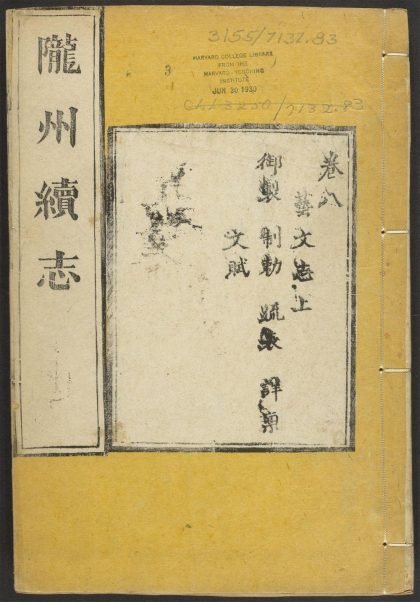 隴州續志
3155/7132.83
HARVARD COLLEGE LIBRARY
FROM THE
HARVARD-YENCHING
INSTITUTE
JUN 30 1930
3
Ch 3250/7132.83
卷八
藝文志上
御製 制勅 疏表 詳稟
文賦